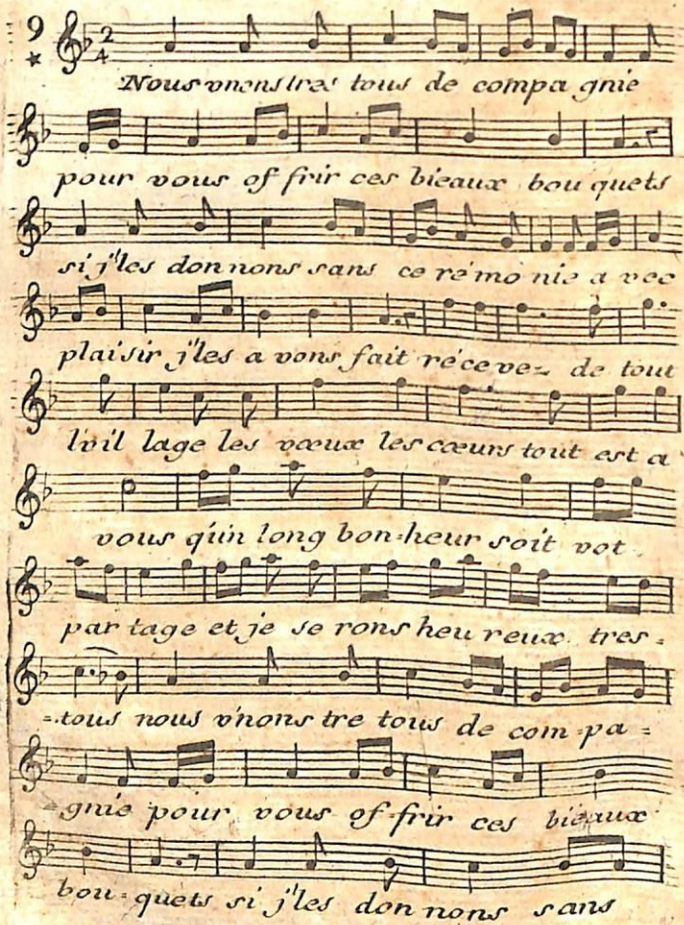 9
2
4
Nous vnons tres tous de compa gnie
pour vous of frir ces bieaux bou quets
si j'les don nons sans ce ré mo nie a vec
plaisir j'les a vons fait récevez de tout
l'vil lage les vœux les cœurs tout est a
vous qu'un long bon-heur soit vot
par tage et je se rons heu reux tres=
=tous nous v'nons tre tous de com=pa=
=gnie pour vous of-frir ces bieaux
bou=quets si j'les don nons sans